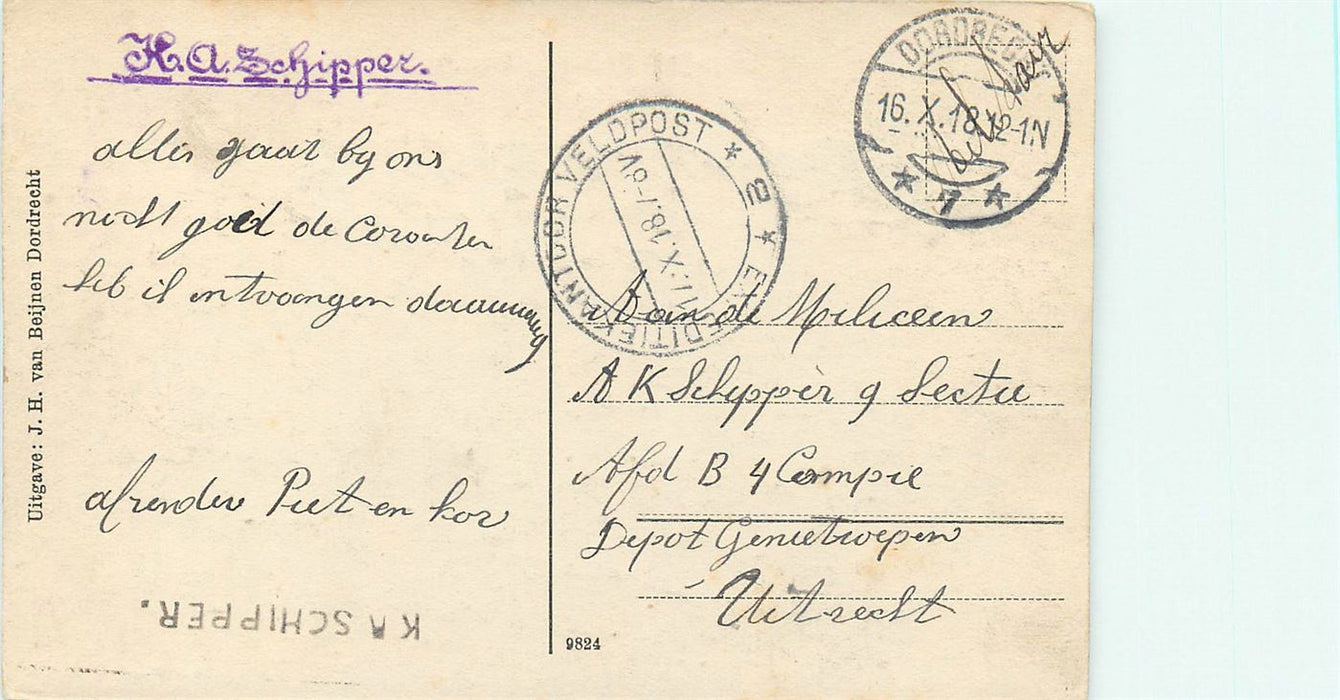 K.A. Schipper.
alles gaat by ons
nocht goed de Coranten
heb ik entvangen
afzender Piet en kor
K A SCHIPPER.
Uitgave: J. H. van Beijnen Dordrecht
EXPEDITIEKANTOOR VELDPOST * 2 *
17.X.18.7-8V
DORDRECHT
16.X.18.12-1N
* 1 *
Aan de Milicien
A K Schipper 9 Sectie
Afd B 4 Compie
Depot Genietroepen
Utrecht
9824